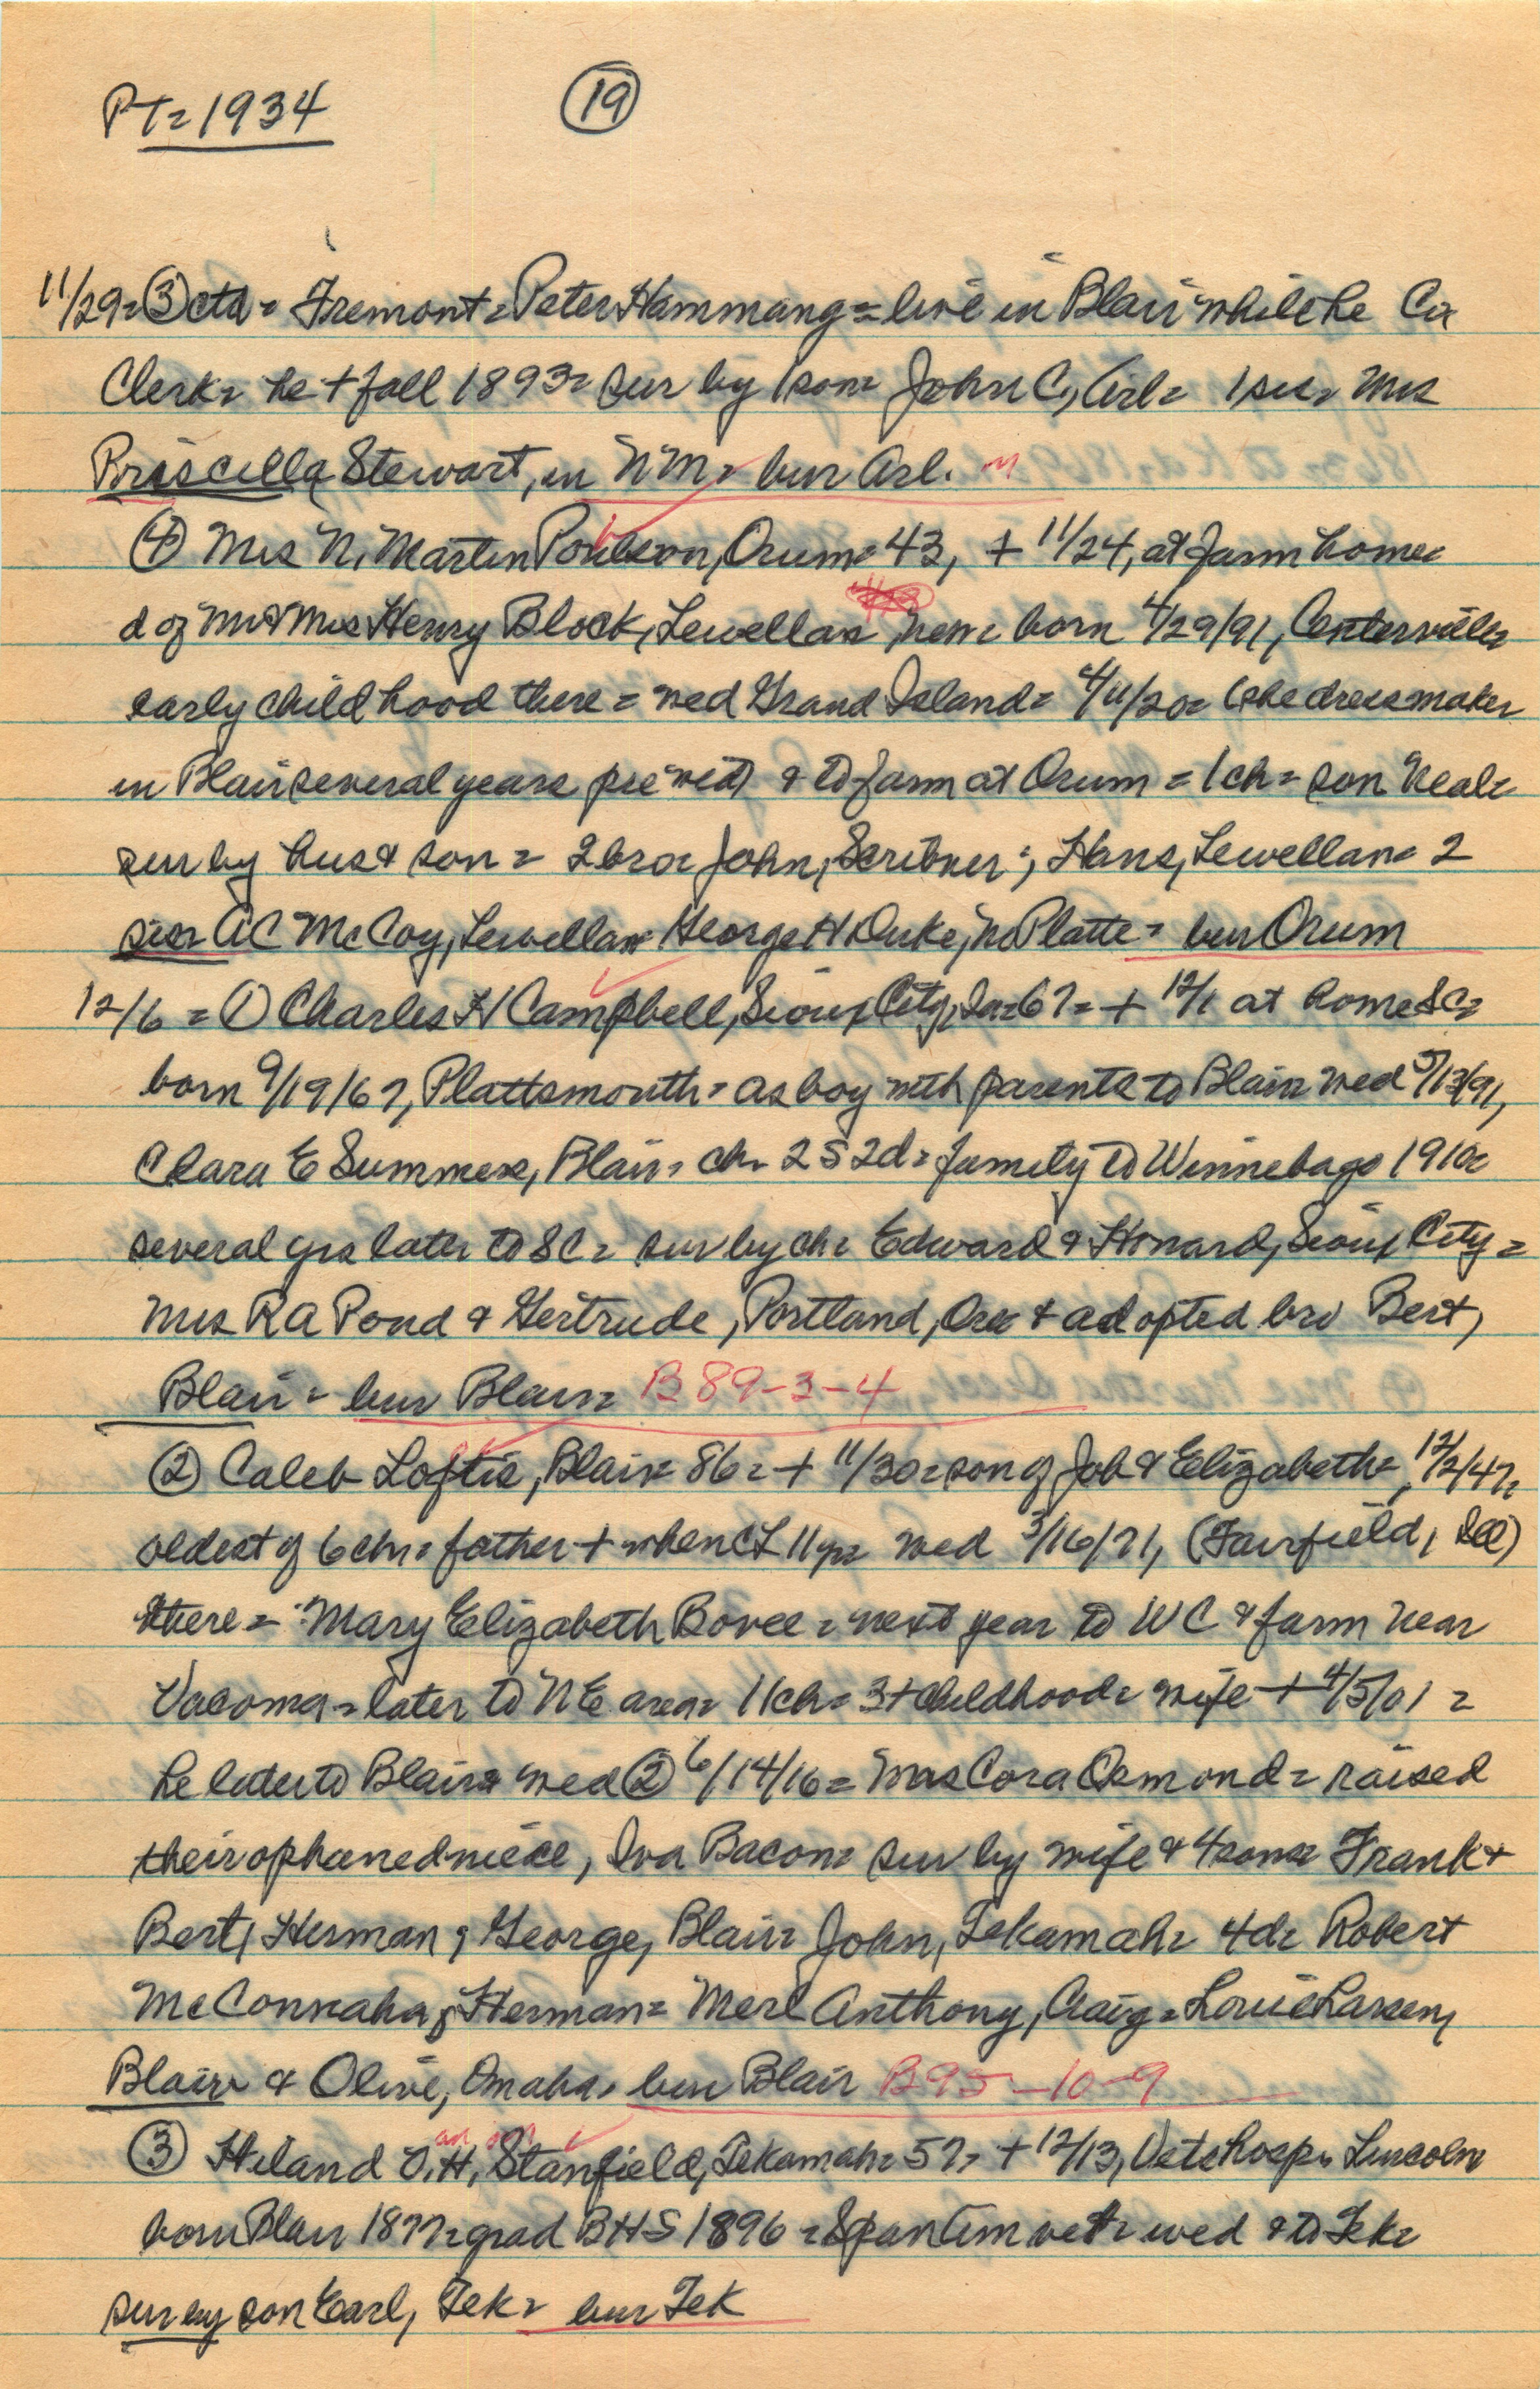 PT = 1934
19
11/29 = 3 ctd = Fremont = Peter Hammang = live in Blair while he Co
Clerk = he + fall 1893 = sur by 1 son = John C, Arl = 1 sis = Mrs
Priscilla Stewart, in NM = bur Arl.
4 Mrs N. Martin Poulson, Orum = 43, + 11/24, at farm home =
d of Mr & Mrs Henry Block, Lewellan, = born 4/29/91, Centerville =
early childhood there = wed Grand Island = 4/11/20 = (she dressmaker
in Blair several years pre wed) & to farm at Orum = 1 ch = son Neal =
sur by hus & son = 2 bro = John, Scribner; Hans, Lewellan = 2
sis = AC McCoy, Lewellan = George H Duke, No Platte = bur Orum
12/6 = 1 Charles H Campbell, Sioux City, Ia = 67 = + 12/1 at home SC =
born 9/19/67, Plattsmouth = as boy with parents to Blair = wed 5/13/91,
Clara E Summers, Blair = ch = 2S 2d = family to Winnebago 1910 =
several yrs later to SC = sur by ch = Edward & Howard, Sioux City =
Mrs RA Pond & Gertrude, Portland, Ore & adopted bro Bert,
Blair = bur Blair = B 89-3-4
2 Caleb Loftis, Blair = 86 = + 11/30 = son of Job & Elizabeth = 12/2/47 =
oldest of 6 ch = father + when CL 11 yr = wed 3/16/71, (Fairfield, Ill)
there = Mary Elizabeth Bovee = next year to WC & farm near
Vacoma = later to NE area = 11 ch = 3 + childhood = wife + 4/5/01 =
he later to Blair & wed 2 6/14/16 = Mrs Cora Osmond = raised
their ophaned niece, Iva Bacon = sur by wife & 4 sons = Frank &
Bert, Herman; George, Blair = John, Tekamah = 4d = Robert
McConnaha, Herman = Merl Anthony, Craig = Louie Larsen,
Blair & Olive, Omaha = bur Blair B95-10-9
3 Hiland O.H. Stanfield, Tekamah = 57 = + 12/13, Vets hosp = Lincoln
born Blair 1877 = grad BHS 1896 = Span Am vet = wed & to Tek =
sur by son Earl, Tek = bur Tek